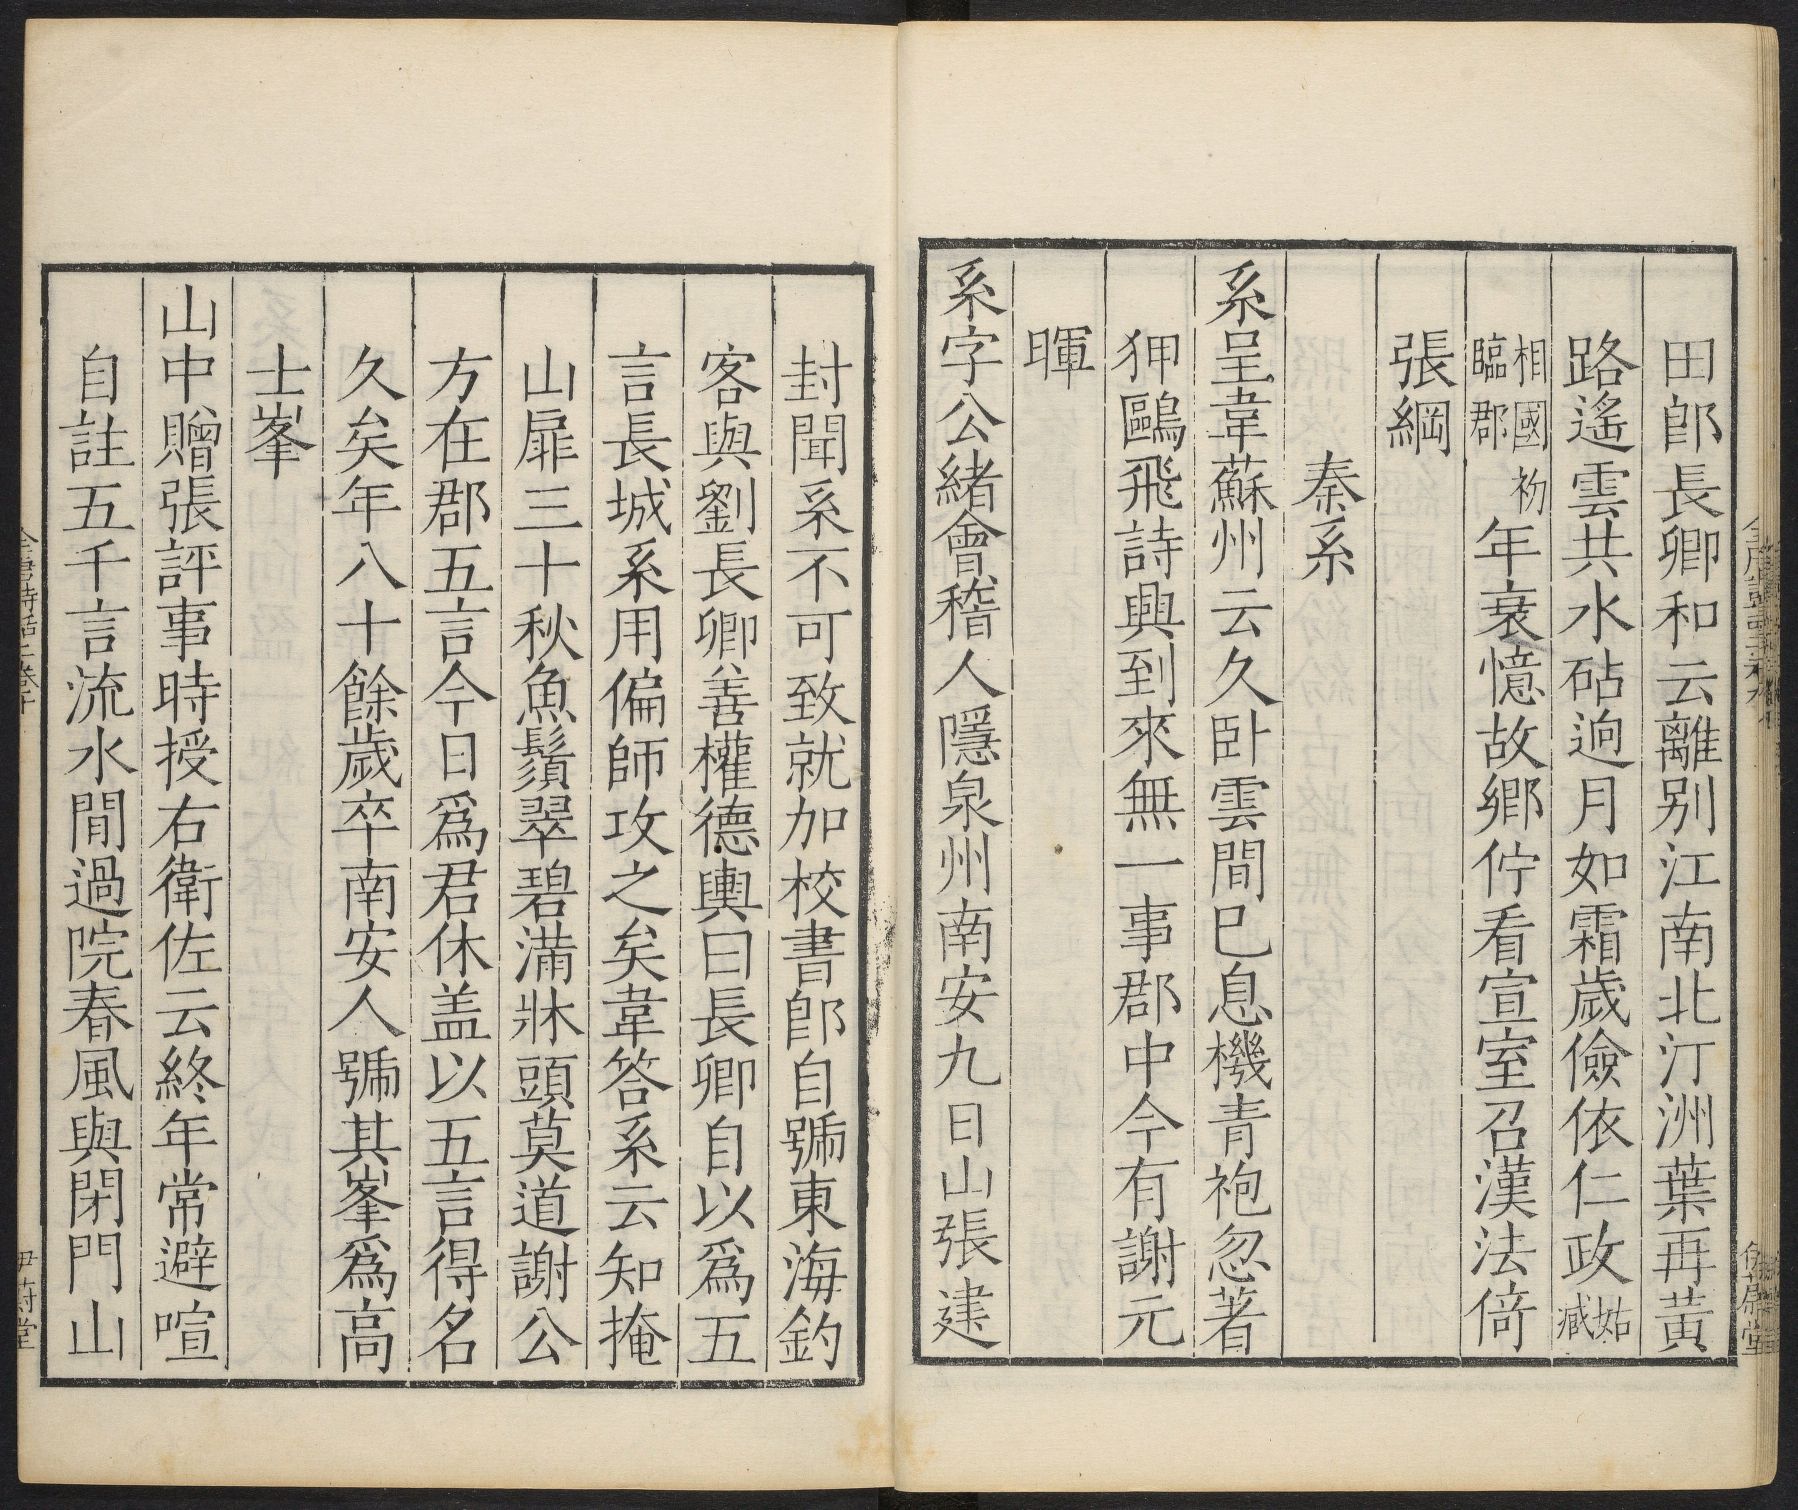 田郎長卿和云離别江南北汀洲葉再黃
路遙雲共水砧迥月如霜歲儉依仁政姑臧
相國初臨郡年衰憶故鄉佇看宣室召漢法倚
張綱
秦系
系呈韋蘇州云久卧雲間已息機青袍忽著
狎鷗飛詩興到來無一事郡中今有謝元
暉
系字公緒會稽人隱泉州南安九日山張建
封聞系不可致就加校書郎自號東海釣
客與劉長卿善權德輿曰長卿自以爲五
言長城系用偏師攻之矣韋答系云知掩
山扉三十秋魚鬚翠碧滿牀頭莫道謝公
方在郡五言今日爲君休盖以五言得名
久矣年八十餘歲卒南安人號其峯爲高
士峯
山中贈張評事時授右衛佐云終年常避喧
自註五千言流水閒過院春風與閉門山